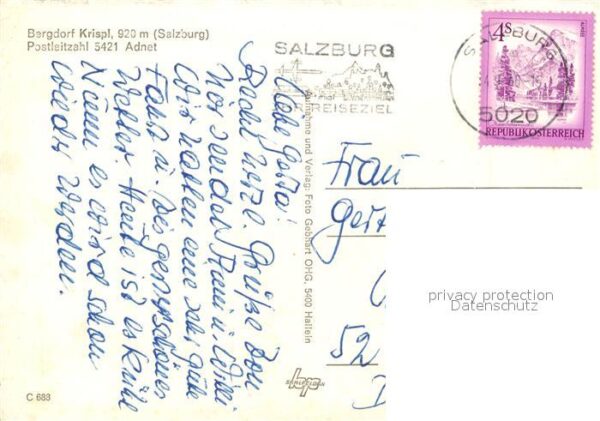 Bergdorf Krispl, 920 m (Salzburg)
Postleitzahl 5421 Adnet
SALZBURG
REISEZIEL
4S
SALZBURG
5020
REPUBLIK ÖSTERREICH
Liebe
Recht herzl. Grüße von
hier sendet
Wir haben eine sehr gute
Fahrt u. bis jetzt schönes
Wetter. Heute ist es kühl
Naenn es wird schon
wieder werden.
Aufnahme und Verlag: Foto Gebhart OHG, 5400 Hallein
Frau
Ger
52
privacy protection
Datenschutz
C 688